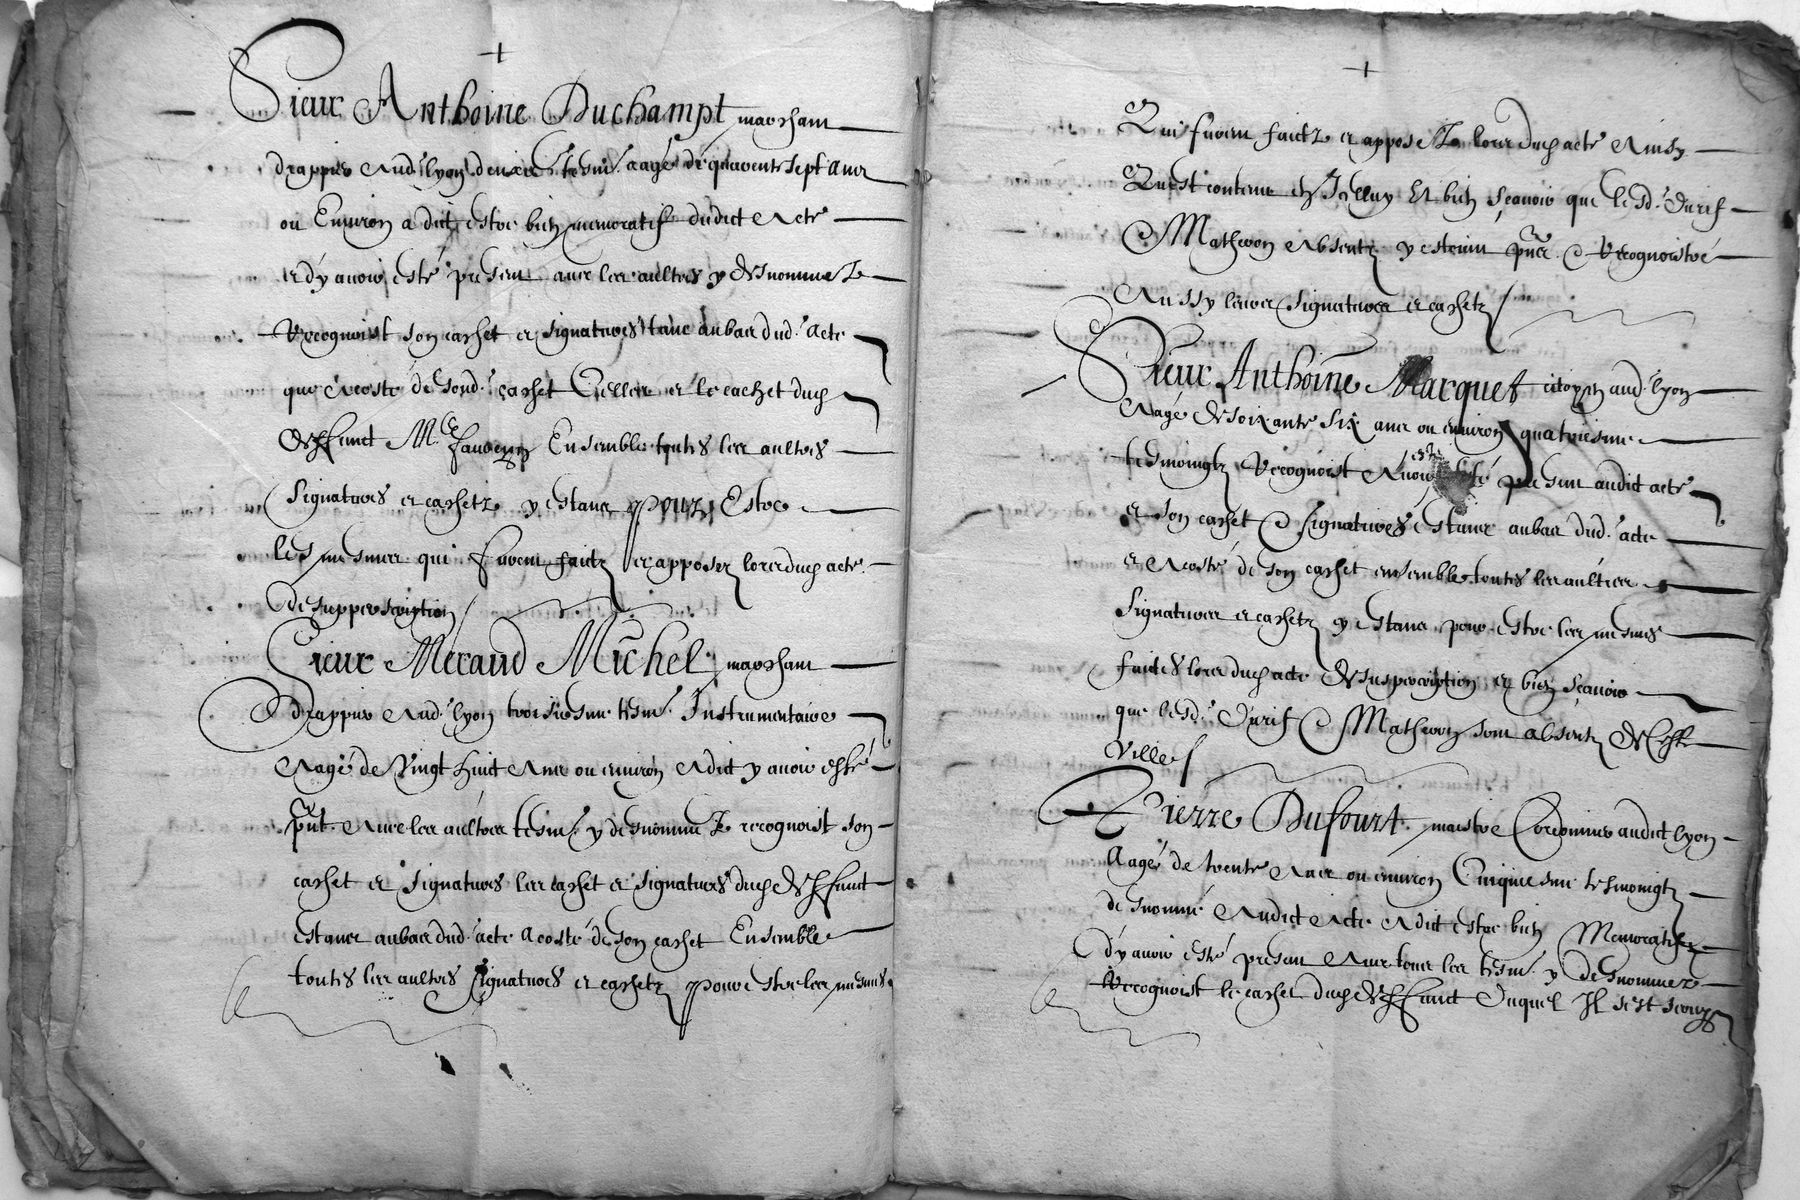 Sieur Anthoine Duchampt marchant
drappier aud. lyon deuxie. tesm. aagé de quarente sept ans
ou Environ a dict estre bien memoratif dudict acte
et d'y avoir esté present avec les aultres y desnommez
Recognoist son cachet et signatures tant au bas dud. acte
que a costé de sond. cachet Celles et le cachet dud.
deffunct M.re Ensemble toutes les aultres
signatures et cachetz y estans pour Estre
les mesmes qui furent faictz et apposez lors dud. acte
de supperscription
Sieur Meraud Michel marchant
drappier aud. lyon troisiesme tesm. Instrumentaire
aagé de Vingt huict ans ou environ a dict y avoir esté
pnt. avec les aultres tesm. y desnommez recognoist son
cachet et signatures les cachet et signatures dud. deffunct
estans au bas dud. acte a costé de son cachet Ensemble
toutes les aultres signatures et cachetz pour estre les mesmes
Qui furent faictz et apposez lors dud. acte ainsy
Quest contenu en Icelluy Et bien sçavoir que lesd. Durif
& Matheron absentz y estoient pns & Recognoistre
aussy leurs signatures et cachetz
Sieur Anthoine Marquet citoyen aud. lyon
aagé de soixante six ans ou environ quatriesme
tesmoingtz Recognoist avoir esté present audict acte
et son cachet & signatures estans au bas dud. acte
et a costé de son cachet ensemble toutes les aultres
signatures et cachetz y estans pour estre les mesmes
faictes lors dud. acte de suspercription et bien sçavoir
que lesd. Durif & Matheron sont absentz de Ceste
Ville
Pierre Dufourt maistre Cordonnier audict lyon
aagé de trente ans ou environ Cinquiesme tesmoingtz
desnommé audict acte a dict estre bien Memoratif
d'y avoir esté present avec tous les tesm. y desnommez
Recognoist le cachet dud. deffunct Duquel Il s'est servy